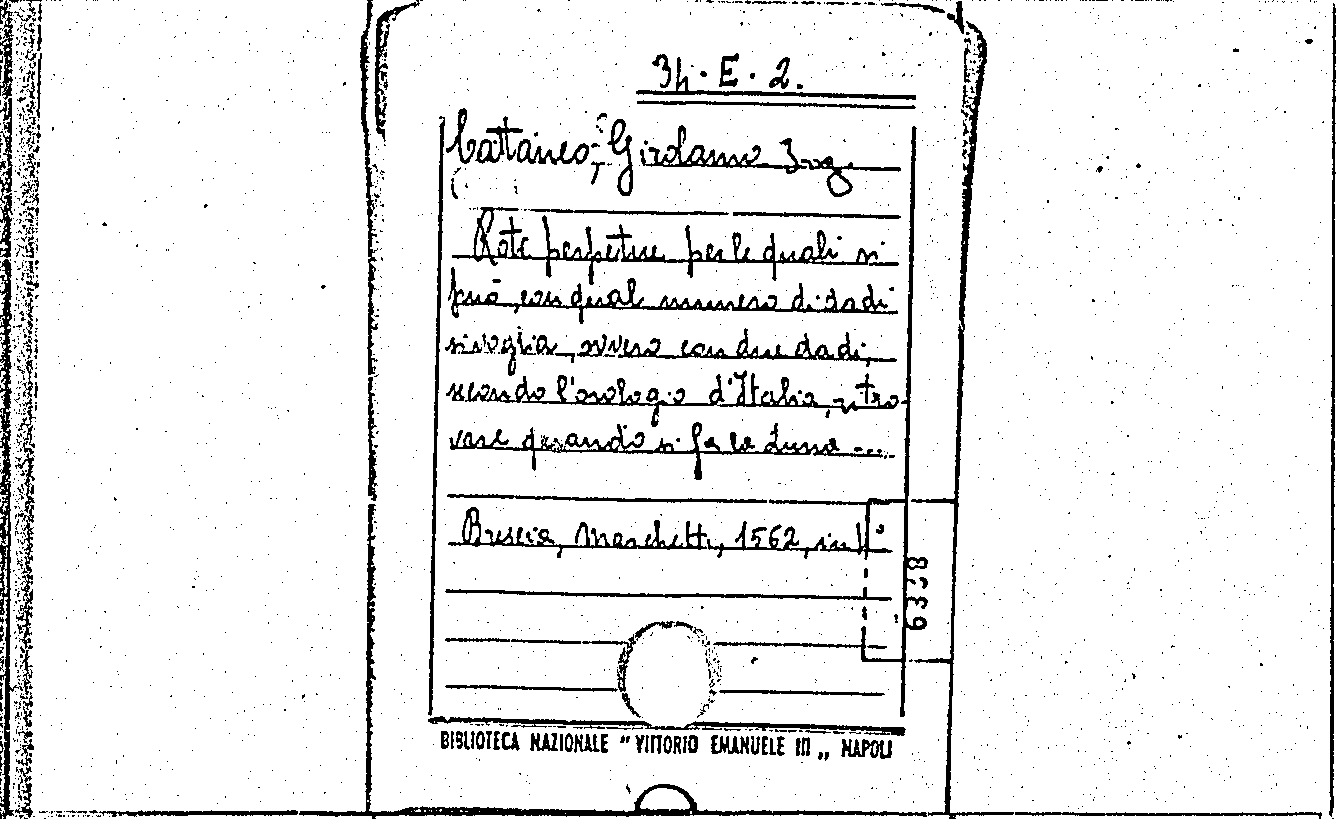 34·E·2.
Cattaneo, Girolamo
Rote perpetue per le quali si
può, con qual numero di dadi
si voglia, ovvero con due dadi,
secondo l'orologio d'Italia, ritro
vare quando si fa la Luna ...
Brescia, Marchetti, 1562, in
BIBLIOTECA NAZIONALE "VITTORIO EMANUELE III„ NAPOLI